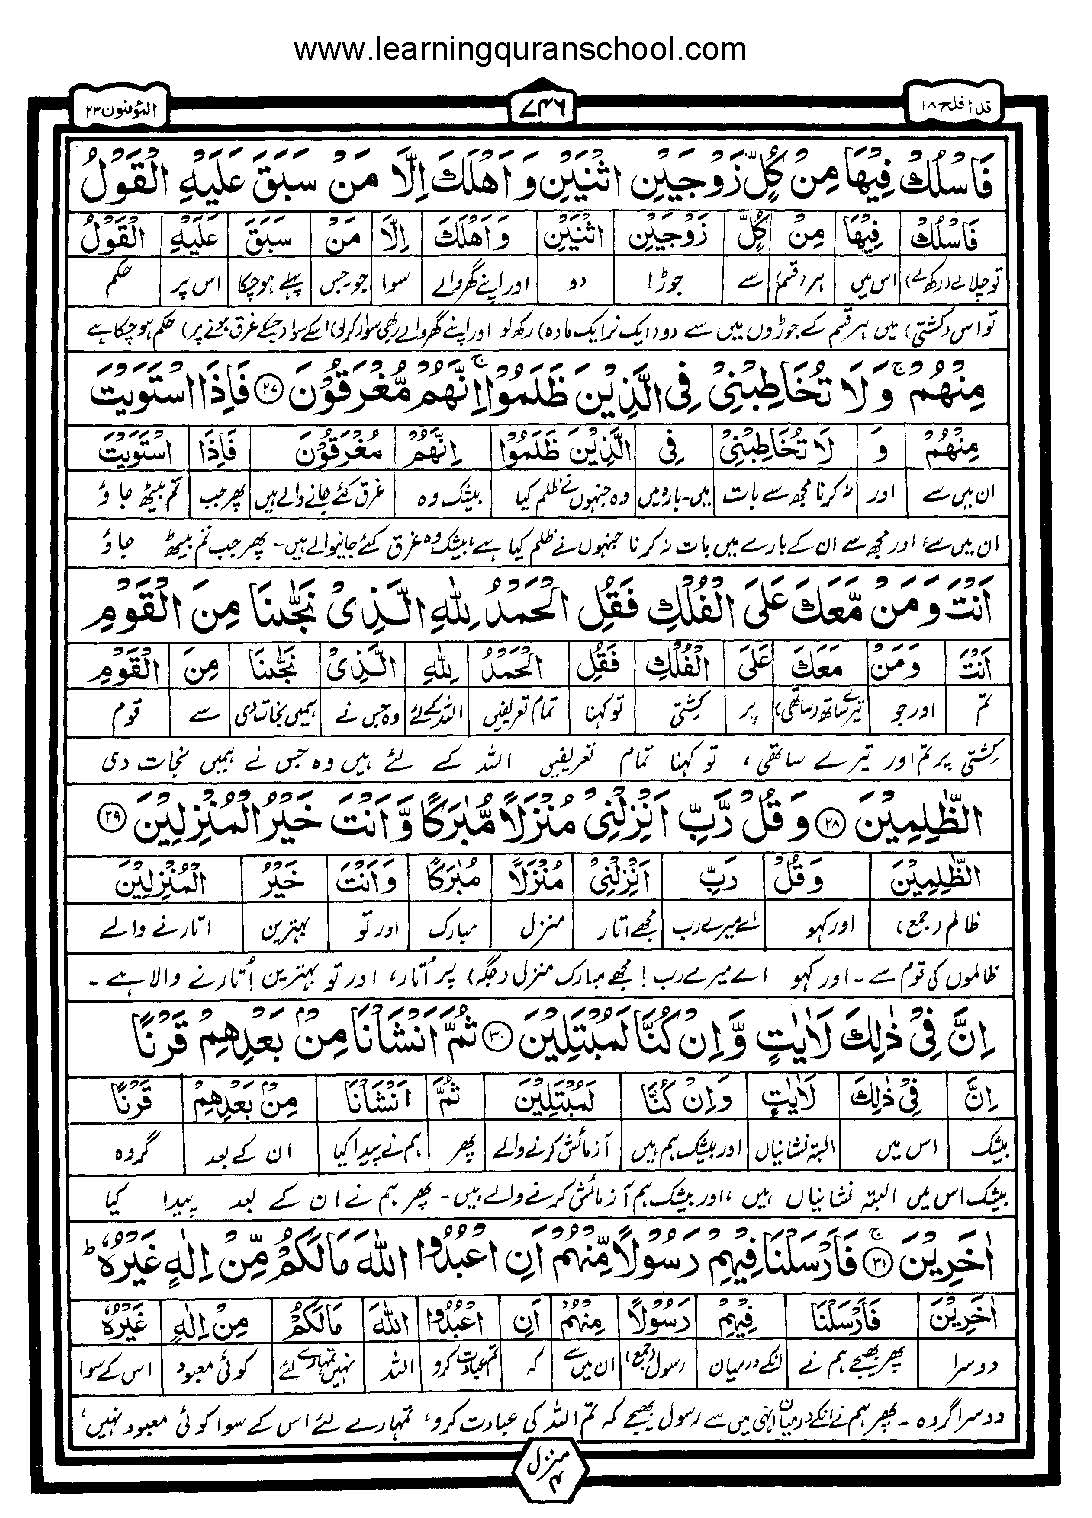 www.learningquranschool.com
قد افلح ١٨
٧٤٦
المؤمنون ٢٣
فَاسْلُكْ فِيْهَا مِنْ كُلٍّ زَوْجَيْنِ اثْنَيْنِ وَاَهْلَكَ اِلَّا مَنْ سَبَقَ عَلَيْهِ الْقَوْلُ
فَاسْلُكْ فِيْهَا مِنْ كُلٍّ زَوْجَيْنِ اثْنَيْنِ وَاَهْلَكَ اِلَّا مَنْ سَبَقَ عَلَيْهِ الْقَوْلُ
تو چلالے (رکھ لے) اس میں سے ہر (قسم) جوڑا دو اور اپنے گھر والے سوا جو۔جس پہلے ہو چکا اس پر حکم
تو اس (کشتی) میں ہر قسم کے جوڑوں میں سے دو (ایک نر ایک مادہ) رکھ لو اور اپنے گھر والے (بھی سوار کرلو) اسکے سوا (جسکے غرق ہونے پر) حکم ہو چکا ہے
مِنْهُمْ ۚ وَلَا تُخَاطِبْنِيْ فِي الَّذِيْنَ ظَلَمُوْا ۚ اِنَّهُمْ مُّغْرَقُوْنَ ۝٢٧ فَاِذَا اسْتَوَيْتَ
مِنْهُمْ وَ لَا تُخَاطِبْنِيْ فِي الَّذِيْنَ ظَلَمُوْا اِنَّهُمْ مُغْرَقُوْنَ فَاِذَا اسْتَوَيْتَ
ان میں سے اور نہ کرنا مجھ سے بات میں۔بارہ میں وہ جنہوں نے ظلم کیا بیشک وہ غرق کئے جانے والے ہیں پھر جب تم بیٹھ جاؤ
ان میں سے، اور مجھ سے ان کے بارے میں بات نہ کرنا جنہوں نے ظلم کیا ہے، بیشک وہ غرق کئے جانیوالے ہیں۔ پھر جب تم بیٹھ جاؤ
اَنْتَ وَمَنْ مَّعَكَ عَلَى الْفُلْكِ فَقُلِ الْحَمْدُ لِلّٰهِ الَّذِيْ نَجّٰىنَا مِنَ الْقَوْمِ
اَنْتَ وَمَنْ مَعَكَ عَلَى الْفُلْكِ فَقُلِ الْحَمْدُ لِلّٰهِ الَّذِيْ نَجّٰىنَا مِنَ الْقَوْمِ
تم اور جو تیرے ساتھ (ساتھی) پر کشتی تو کہنا تمام تعریفیں اللہ کے لئے وہ جس نے ہمیں نجات دی سے قوم
کشتی پر تم اور تیرے ساتھی، تو کہنا تمام تعریفیں اللہ کے لئے ہیں وہ جس نے ہمیں نجات دی
الظّٰلِمِيْنَ ۝٢٨ وَقُلْ رَّبِّ اَنْزِلْنِيْ مُنْزَلًا مُّبٰرَكًا وَّاَنْتَ خَيْرُ الْمُنْزِلِيْنَ ۝٢٩
الظّٰلِمِيْنَ وَقُلْ رَبِّ اَنْزِلْنِيْ مُنْزَلًا مُبٰرَكًا وَاَنْتَ خَيْرُ الْمُنْزِلِيْنَ
ظالم (جمع) اور کہو اے میرے رب مجھے اتار منزل مبارک اور تو بہترین اتارنے والے
ظالموں کی قوم سے۔ اور کہو اے میرے رب! مجھے مبارک منزل (جگہ) پر اُتار، اور تو بہترین اُتارنے والا ہے۔
اِنَّ فِيْ ذٰلِكَ لَاٰيٰتٍ وَّاِنْ كُنَّا لَمُبْتَلِيْنَ ۝٣٠ ثُمَّ اَنْشَاْنَا مِنْۢ بَعْدِهِمْ قَرْنًا
اِنَّ فِيْ ذٰلِكَ لَاٰيٰتٍ وَاِنْ كُنَّا لَمُبْتَلِيْنَ ثُمَّ اَنْشَاْنَا مِنْۢ بَعْدِهِمْ قَرْنًا
بیشک اس میں البتہ نشانیاں اور بیشک ہم ہیں آزمائش کرنے والے پھر ہم نے پیدا کیا ان کے بعد گروہ
بیشک اس میں البتہ نشانیاں ہیں، اور بیشک ہم آزمائش کرنے والے ہیں۔ پھر ہم نے ان کے بعد پیدا کیا
اٰخَرِيْنَ ۝٣١ۚ فَاَرْسَلْنَا فِيْهِمْ رَسُوْلًا مِّنْهُمْ اَنِ اعْبُدُوا اللّٰهَ مَا لَكُمْ مِّنْ اِلٰهٍ غَيْرُهٗ ؕ
اٰخَرِيْنَ فَاَرْسَلْنَا فِيْهِمْ رَسُوْلًا مِنْهُمْ اَنِ اعْبُدُوا اللّٰهَ مَا لَكُمْ مِنْ اِلٰهٍ غَيْرُهٗ
دوسرا پھر بھیجے ہم نے انکے درمیان رسول (جمع) ان میں سے کہ تم عبادت کرو اللہ نہیں تمہارے لئے کوئی معبود اس کے سوا
دوسرا گروہ۔ پھر ہم نے انکے درمیان انہی میں سے رسول بھیجے کہ تم اللہ کی عبادت کرو، تمہارے لئے اس کے سوا کوئی معبود نہیں،
منزل ۴